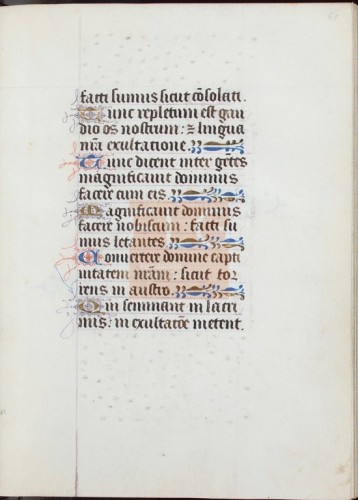 facti sumus sicut cōsolati.
Tunc repletum est gau
dio os nostrum: ⁊ lingua
nr̄a exultatione.
Tunc dicent inter gētes
magnificauit dominus
facere cum eis.
Magnificauit dominus
facere nobiscum: facti su
mus letantes
Conuertere domine capti
uitatem nr̄am: sicut tor
rens in austro.
Qui seminant in lacri
mis: in exultatiōe metent.